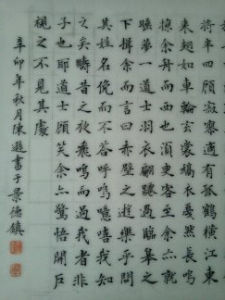 將半四顧寂寥適有孤鶴橫江東
來翅如車輪玄裳縞衣戛然長鳴
掠余舟而西也須臾客去余亦就
睡夢一道士羽衣翩躚過臨皋之
下揖余而言曰赤壁之遊樂乎問
其姓名俛而不答嗚呼噫嘻我知
之矣疇昔之夜飛鳴而過我者非
子也耶道士顧笑余亦驚悟開戶
視之不見其處
辛卯年秋月陳書于景德鎮